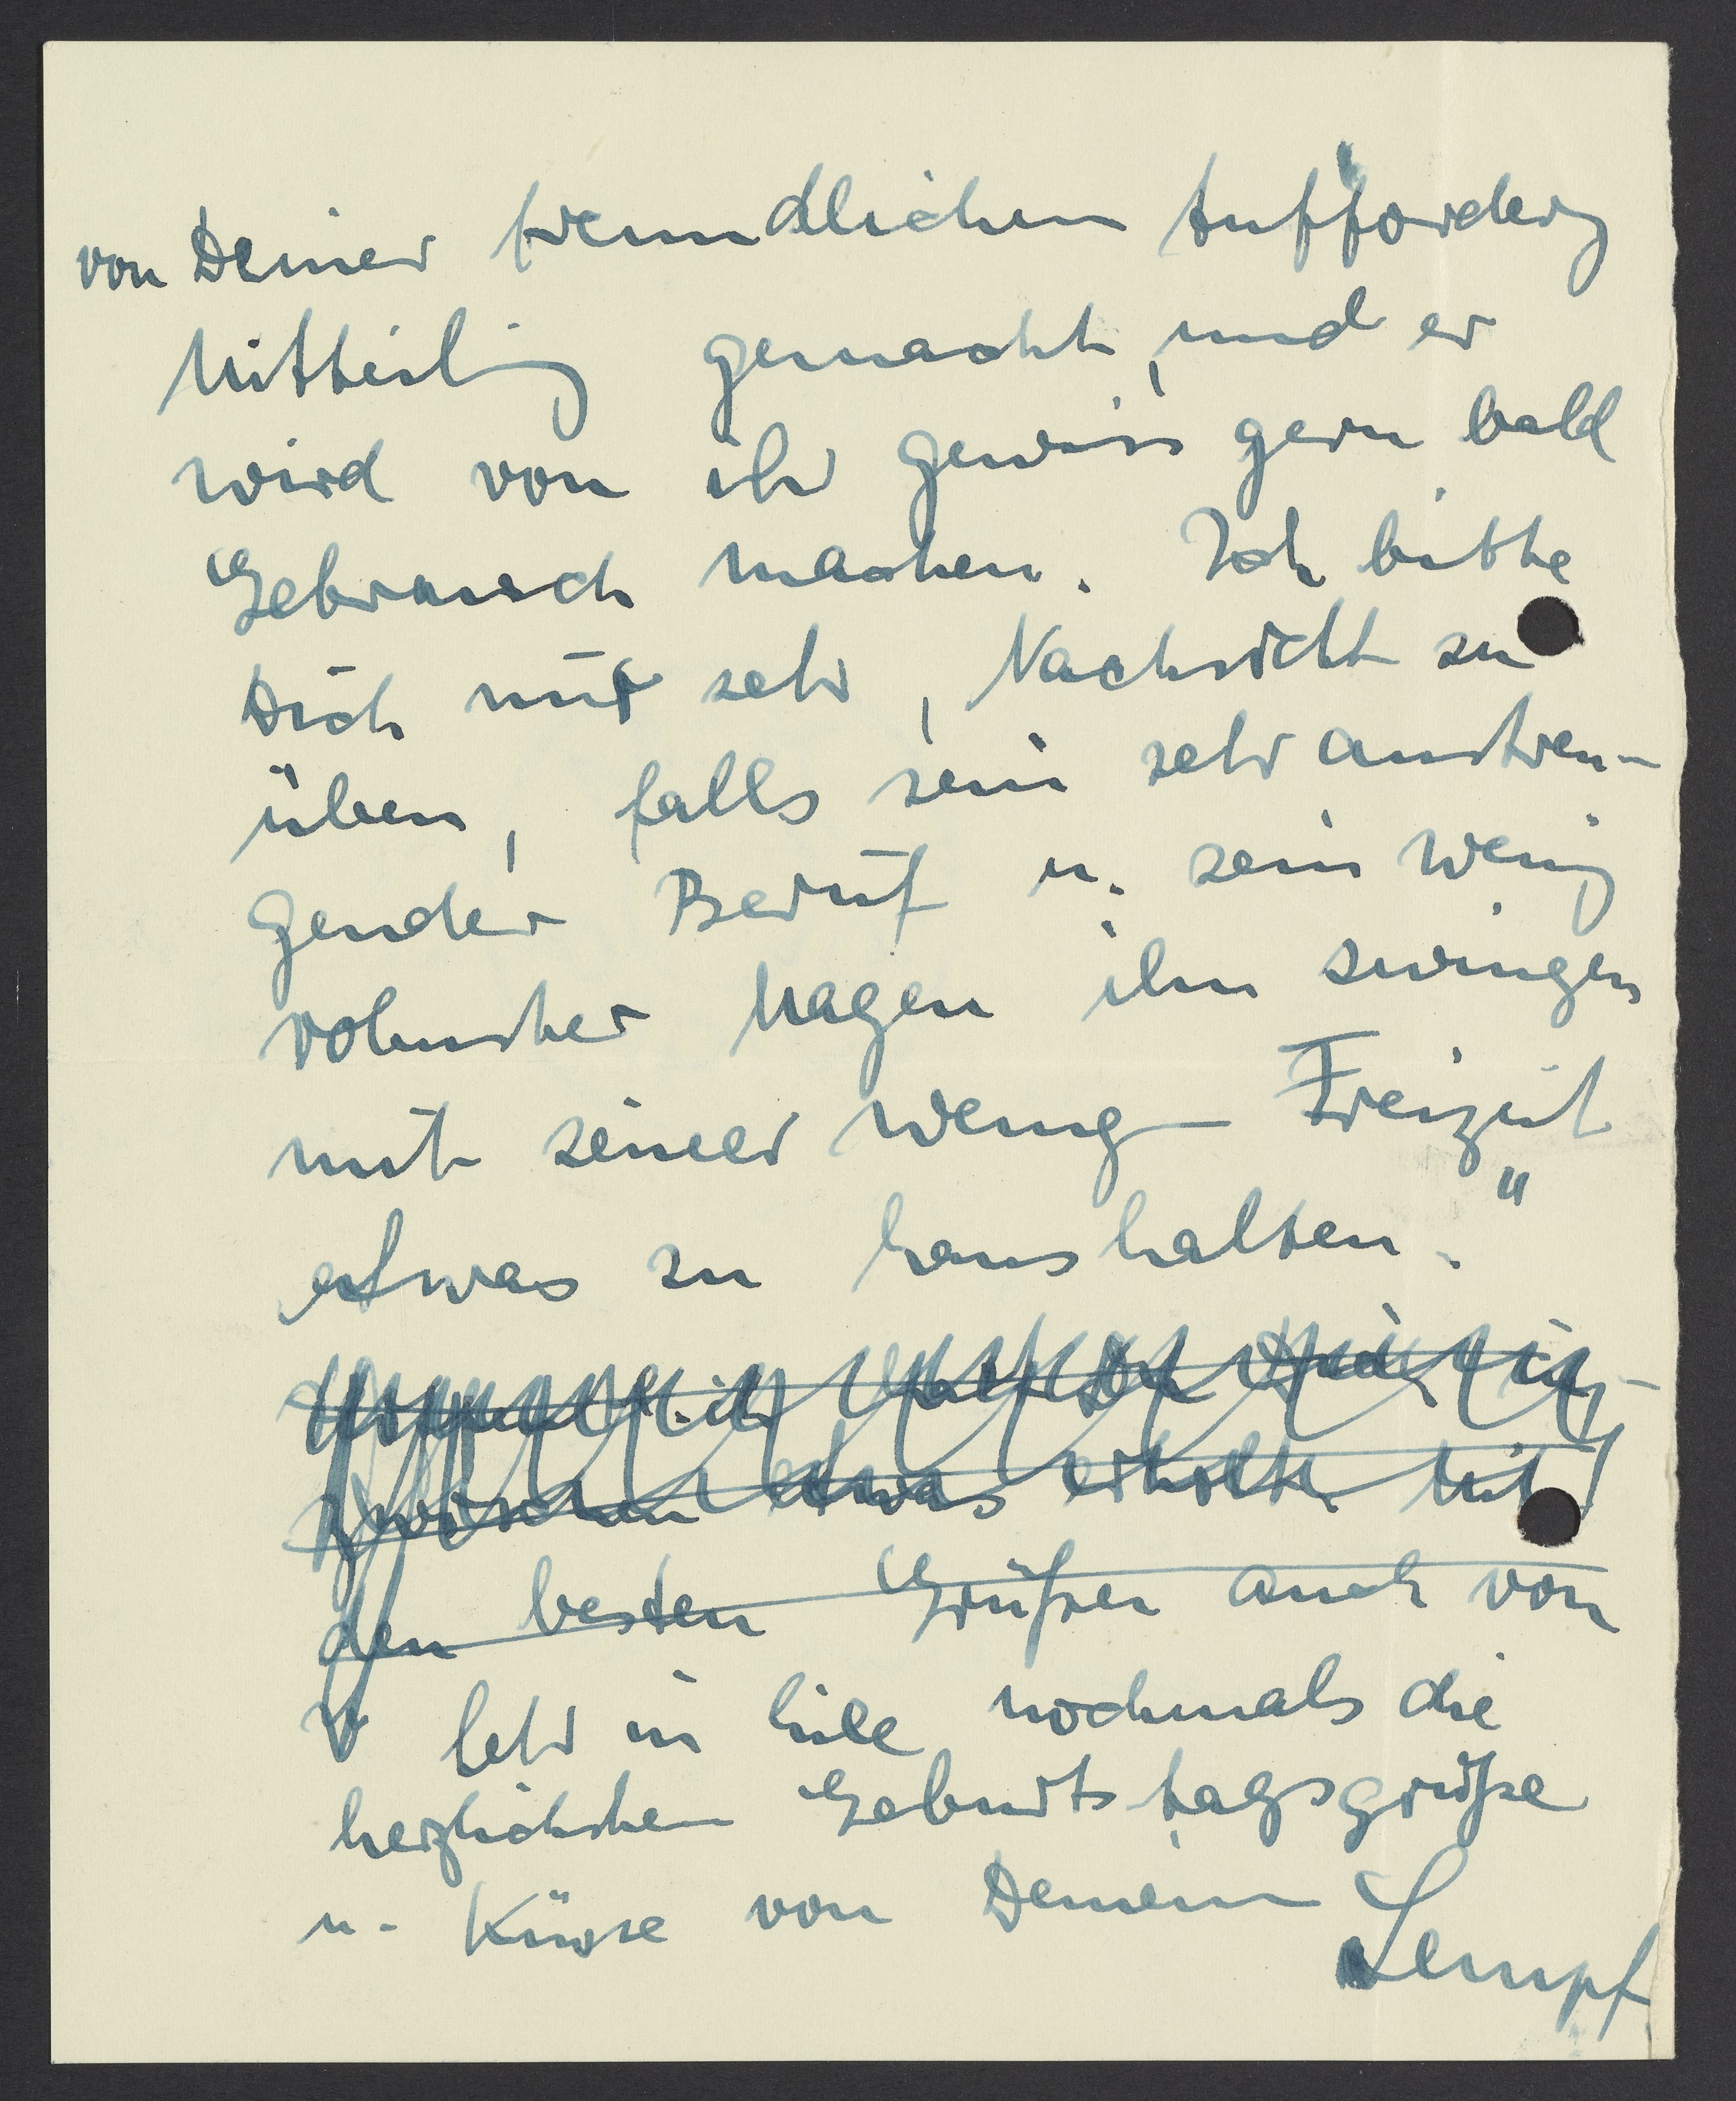 von Deiner freundlichen Aufforderg
Mitteilg gemacht, und er
wird von ihr gewiss gern bald
Gebrauch machen. Ich bitte
Dich nur sehr, Nachsicht zu
üben, falls sein sehr anstren-
gender Beruf u. sein wenig
robuster Magen ihn zwingen
mit seiner wenig Freizeit
etwas zu haushalten."
zwischen etwas erholt. Mit
den besten Grüßen auch von
V
nochmals die
herzlichsten Geburtstagsgrüße
u. Küsse von Deinem
Lempf